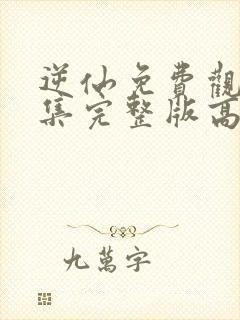 逆仙免費觀
集完整版高
九萬字